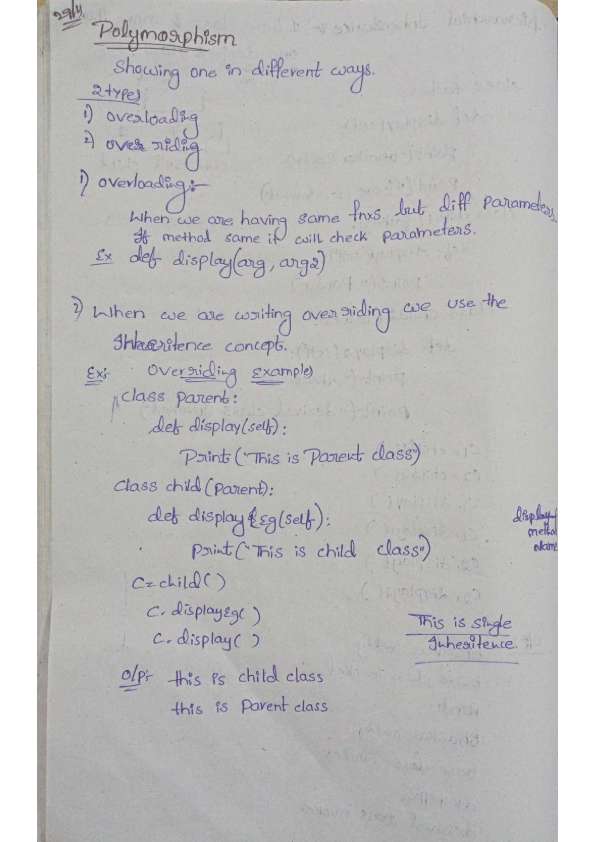 29/4
Polymorphism
Showing one in different ways.
2 types
1) overloading
2) over riding
1) overloading:-
When we are having same fnxs but diff parameters,
If method same it will check parameters.
Ex def display(arg, arg2)
2) When we are writing over riding we use the
Inheritence concept.
Ex:- Overriding Examples
class parent:
def display(self):
Print("This is Parent class")
Class child(parent):
def displayEg(self):
print("This is child class")
display
method
name
C=child()
C. displayEg()
C. display()
This is single
Inheritence.
O/P:- this is child class
this is Parent class